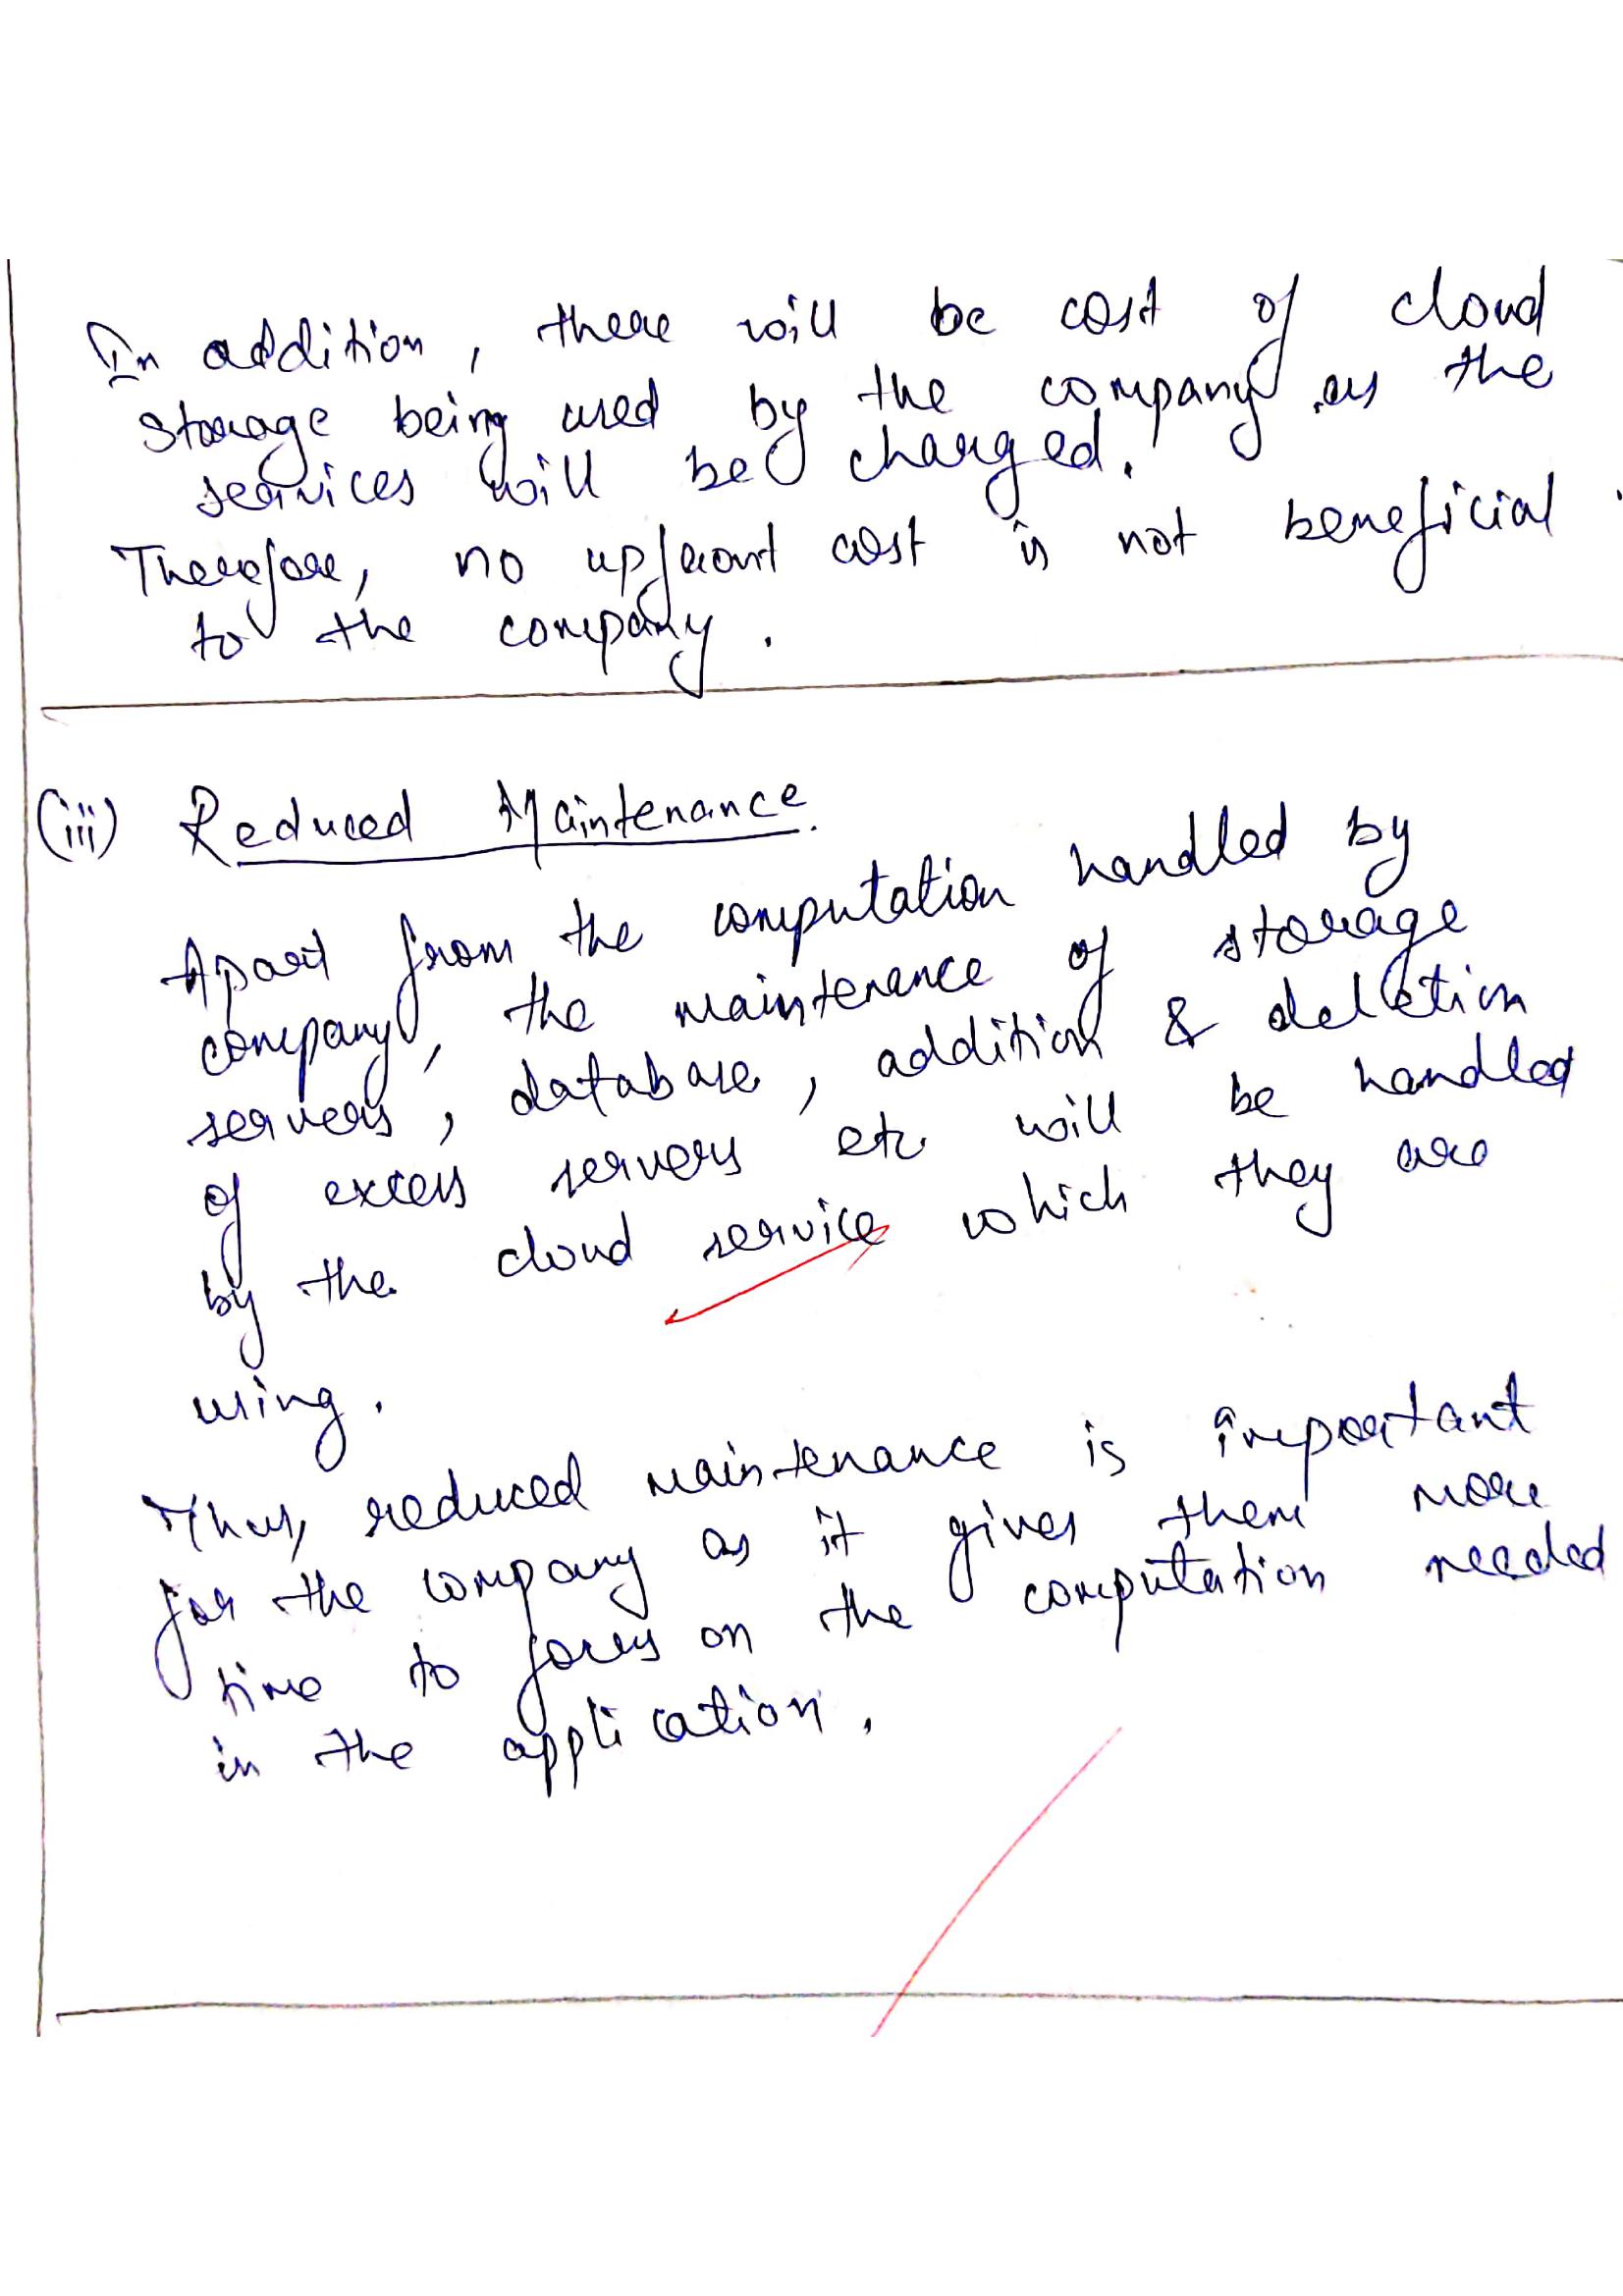 In addition, there will be cost of cloud
storage being used by the company as the
services will be charged.
Therefore, no upfront cost is not beneficial
to the company.
(iii) Reduced Maintenance.
Apart from the computation handled by
company, the maintenance of storage
servers, database, addition & deletion
of excess servers etc will be handled
by the cloud service which they are
using.
Thus, reduced maintenance is important
for the company as it gives them more
time to focus on the computation needed
in the application.